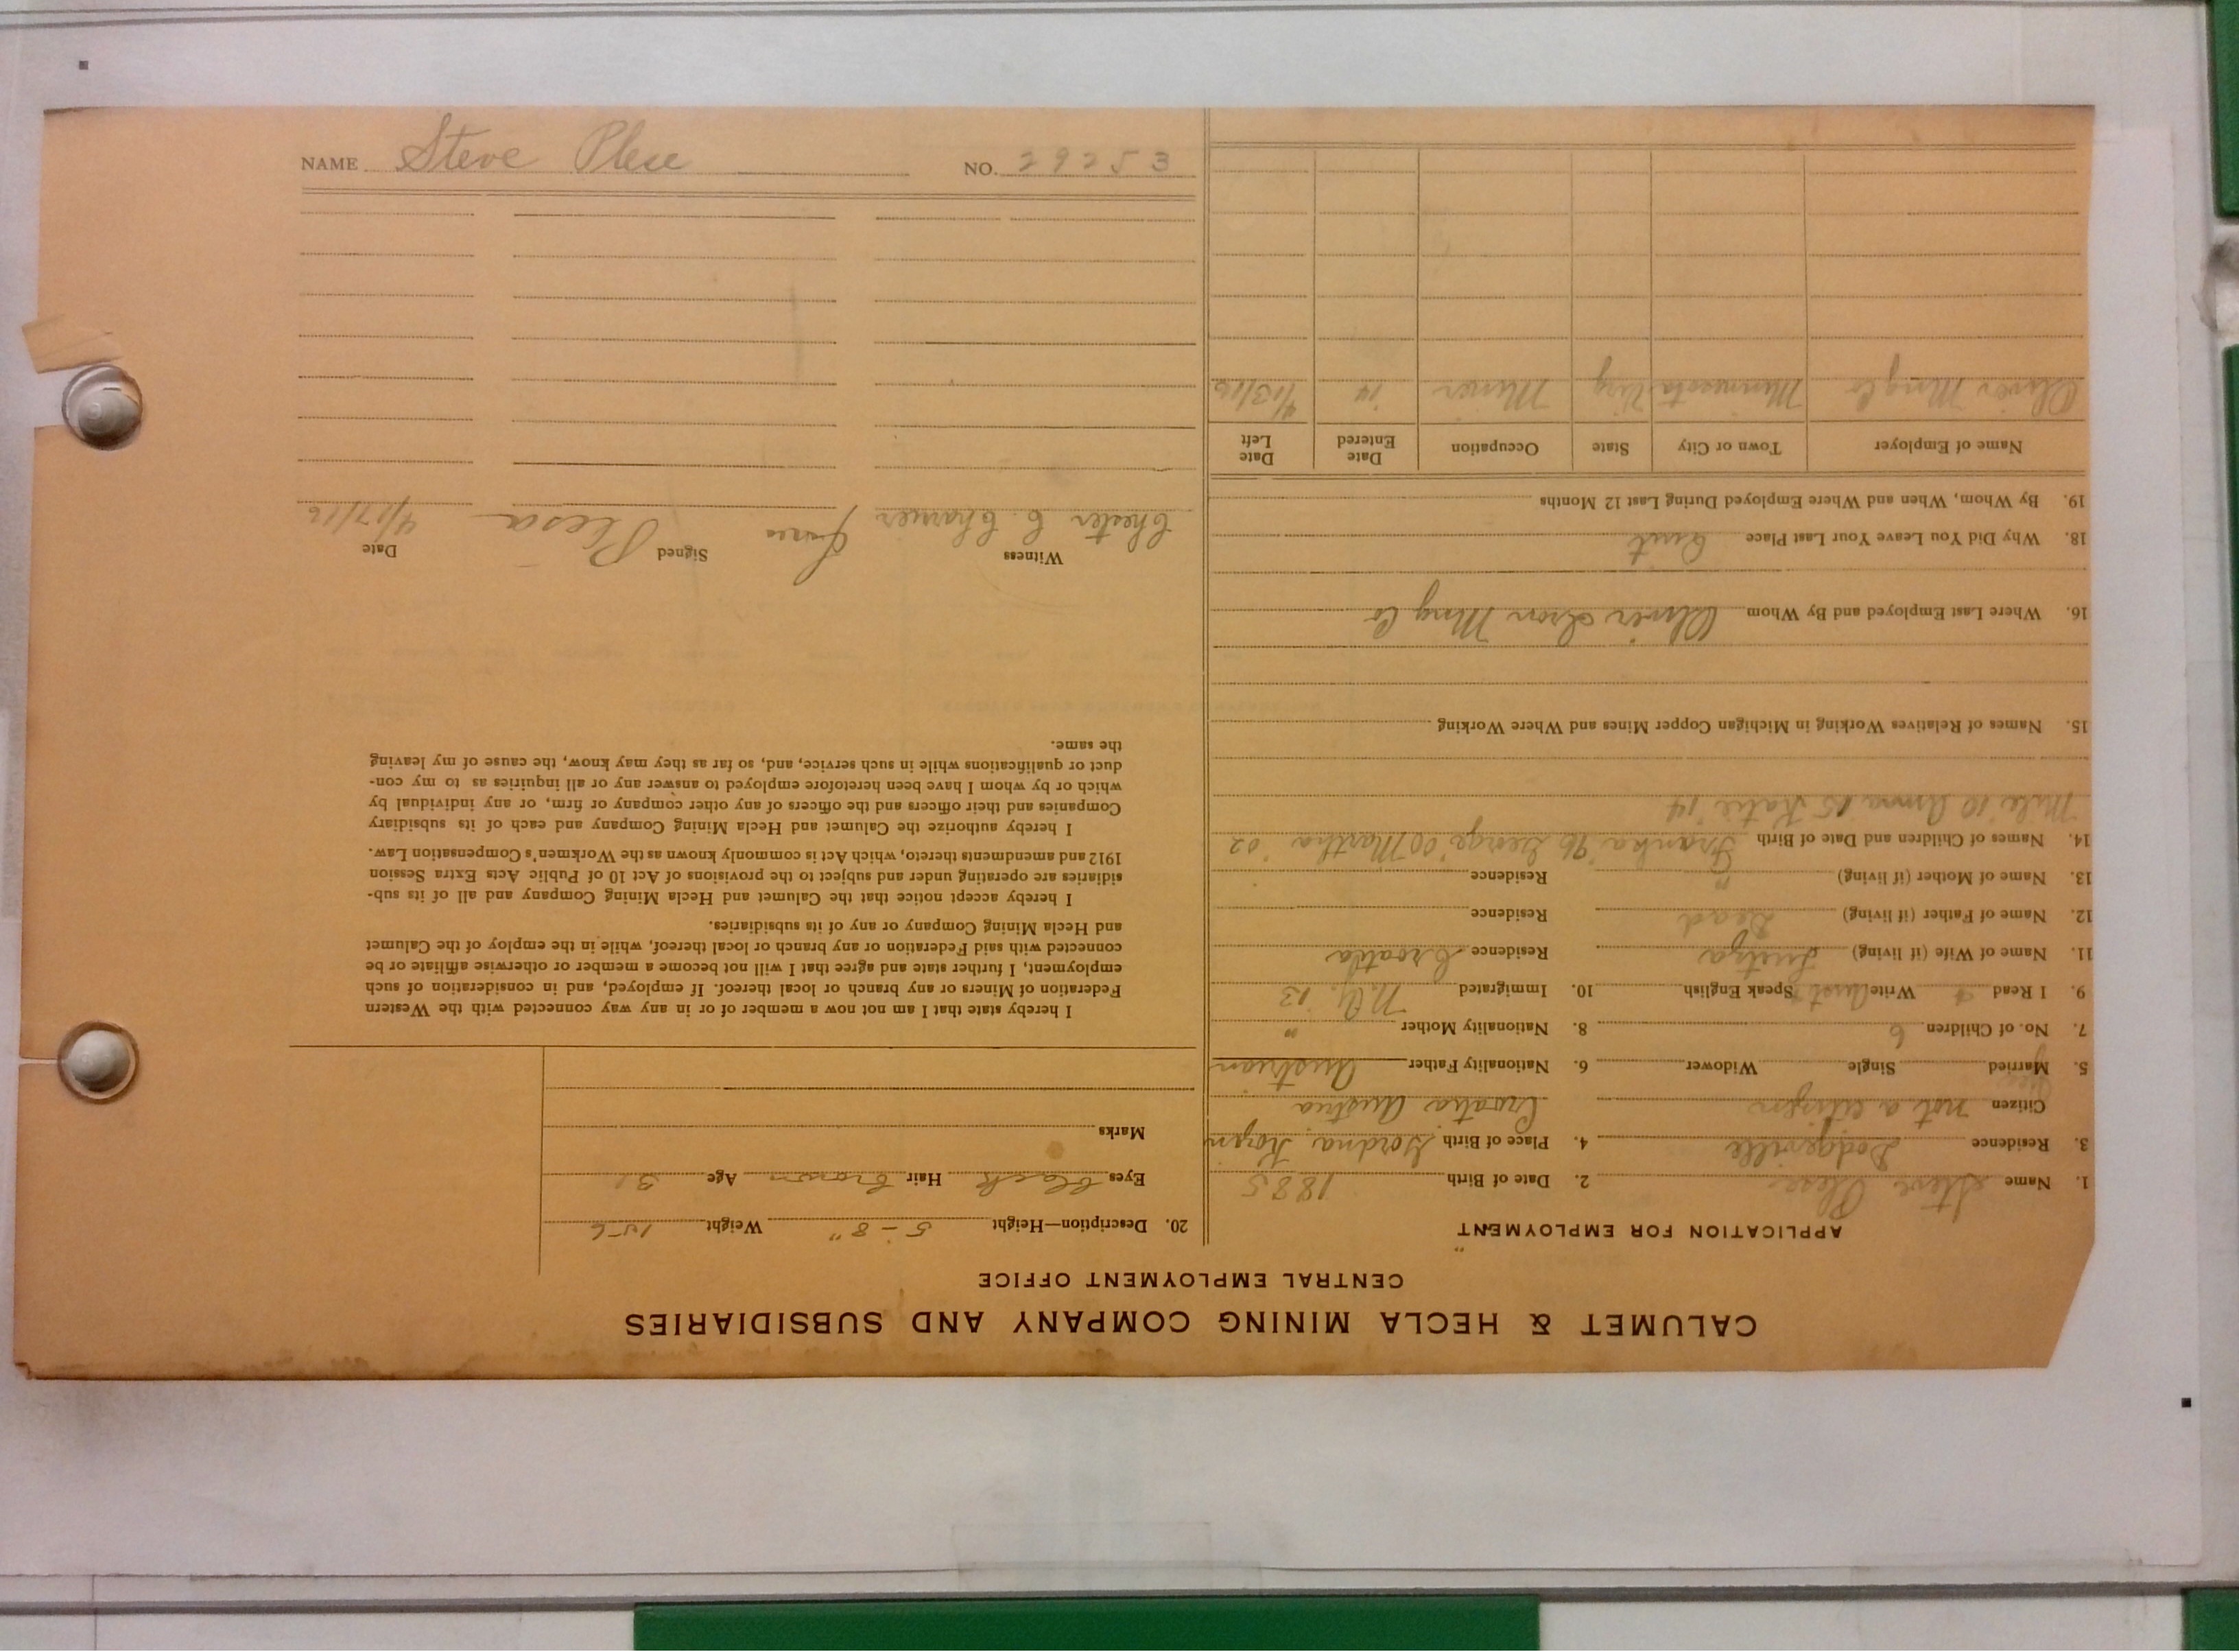 NAME Steve Plese NO. 29253
CALUMET & HECLA MINING COMPANY AND SUBSIDIARIES
CENTRAL EMPLOYMENT OFFICE
APPLICATION FOR EMPLOYMENT
1. Name Steve Plese 2. Date of Birth 1885
3. Residence Dodgeville 4. Place of Birth Gordna, Kozin
Citizen not a citizen Croatia Austria
5. Married Single Widower 6. Nationality Father Austrian
7. No. of Children 6 8. Nationality Mother "
9. I Read Write Aust Speak English 10. Immigrated N.Y. '13
11. Name of Wife (if living) Residence Croatia
12. Name of Father (if living) Dead Residence
13. Name of Mother (if living) " Residence
14. Names of Children and Date of Birth Franka '96 George '00 Martha '02
Mile '10 Anna '05 Katie '14
15. Names of Relatives Working in Michigan Copper Mines and Where Working
16. Where Last Employed and By Whom Oliver Iron Mng Co
18. Why Did You Leave Your Last Place Quit
19. By Whom, When and Where Employed During Last 12 Months
Name of Employer Town or City State Occupation Date Entered Date Left
Oliver Mng Co Minnesota Virg Miner 14 4/13/16
20. Description—Height 5-8" Weight 156
Eyes black Hair brown Age 31
Marks
I hereby state that I am not now a member of or in any way connected with the Western
Federation of Miners or any branch or local thereof. If employed, and in consideration of such
employment, I further state and agree that I will not become a member or otherwise affiliate or be
connected with said Federation or any branch or local thereof, while in the employ of the Calumet
and Hecla Mining Company or any of its subsidiaries.
I hereby accept notice that the Calumet and Hecla Mining Company and all of its sub-
sidiaries are operating under and subject to the provisions of Act 10 of Public Acts Extra Session
1912 and amendments thereto, which Act is commonly known as the Workmen's Compensation Law.
I hereby authorize the Calumet and Hecla Mining Company and each of its subsidiary
Companies and their officers and the officers of any other company or firm, or any individual by
which or by whom I have been heretofore employed to answer any or all inquiries as to my con-
duct or qualifications while in such service, and, so far as they may know, the cause of my leaving
the same.
Witness Signed Date
Chester C. Plesa 4/17/16